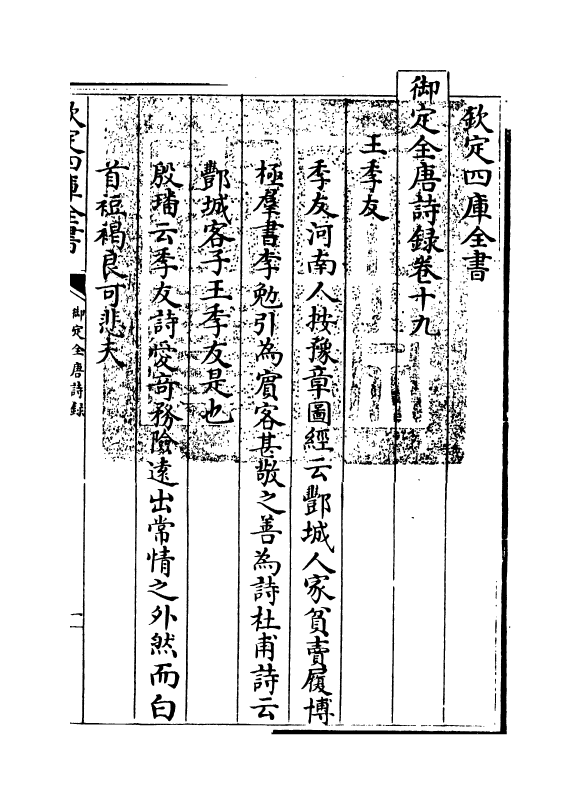 欽定四庫全書
御定全唐詩錄卷十九
王季友
季友河南人按豫章圖經云酆城人家貧賣履博
極羣書李勉引為賓客甚敬之善為詩杜甫詩云
酆城客子王季友是也
殷璠云季友詩愛竒務險遠出常情之外然而白
首短褐良可悲夫
欽定四庫全書
御定全唐詩録
一